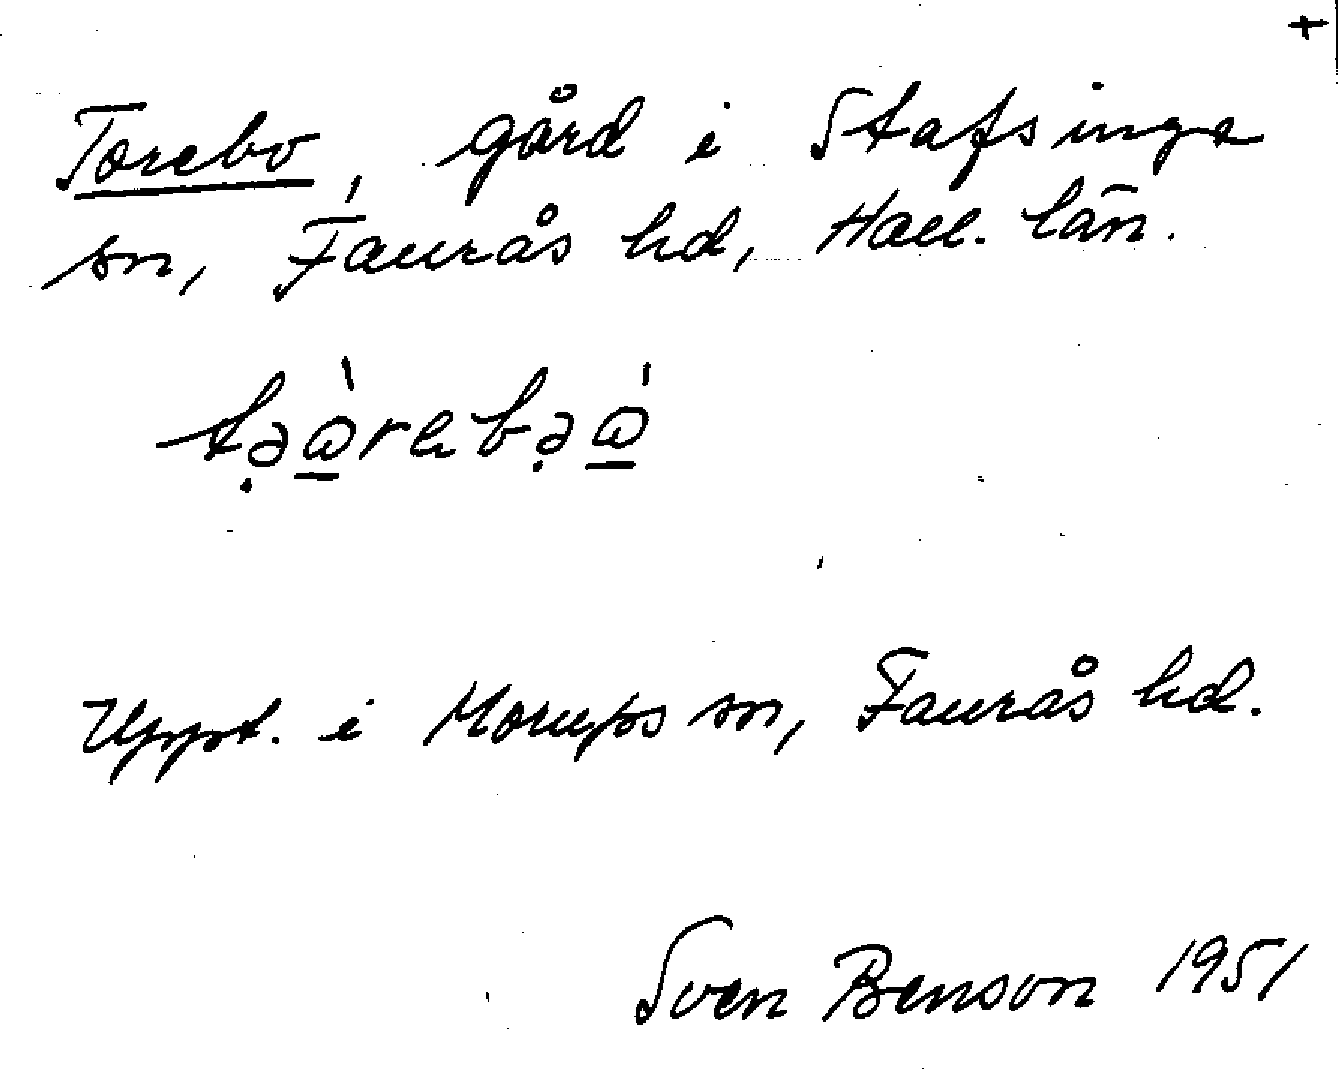 +
Torebo, gård i Stafsinge
sn, Faurås hd, Hall. län.
Uppt. i Morups sn, Faurås hd.
Sven Benson 1951